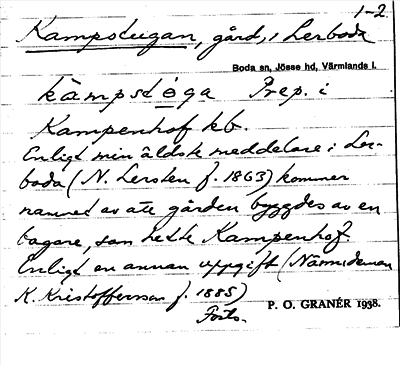 1-2.
Kampstugan, gård, i Lerboda
Boda sn, Jösse hd, Värmlands l.
kàmpstẹga Prep. i
Kampenhof kb.
Enligt min äldste meddelare i Ler-
boda (N. Lersten f. 1863) kommer
namnet av att gården byggdes av en
bagare, som hette Kampenhof.
Enligt en annan uppgift (Nämndeman
K. Kristofferson f. 1885)
Forts.
P. O. GRANÉR 1938.